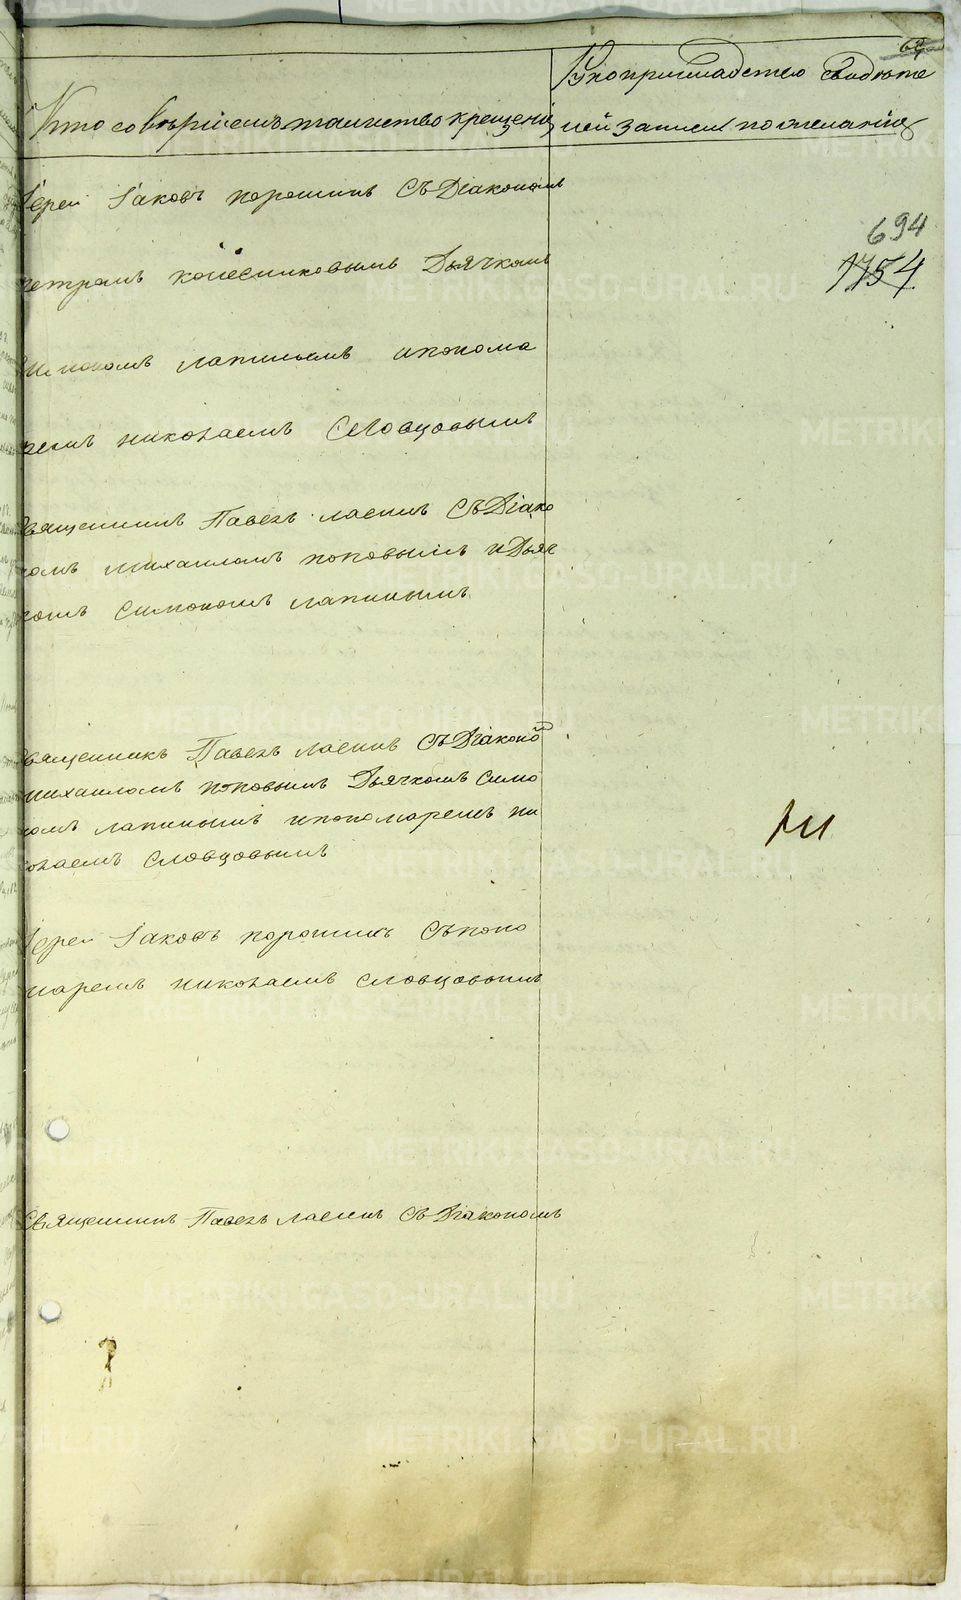 69
Рукоприкладство свидѣте
Кто совершилъ таинство крещенія
лей записи по желанію
694
1754
Іерей Іаковъ порошинъ Съ Діакономъ
петромъ колесниковымъ Дьячкомъ
Симономъ лапинымъ ипонома
ремъ николаемъ Словцовымъ
Священникъ Павелъ лаеинъ Съ Діако
номъ михаиломъ поповымъ и Дьяч
комъ Симономъ лапинымъ
Священникъ Павелъ лаеинъ Съ Діаконо
михаиломъ поповымъ Дьячкомъ Симо
номъ лапинымъ ипономаремъ ни
колаемъ Словцовымъ
Іерей Іаковъ порошинъ Съ поно
маремъ николаемъ Словцовымъ
Священникъ Павелъ лаеинъ Съ Діакономъ
METRIKI.GASO-URAL.RU